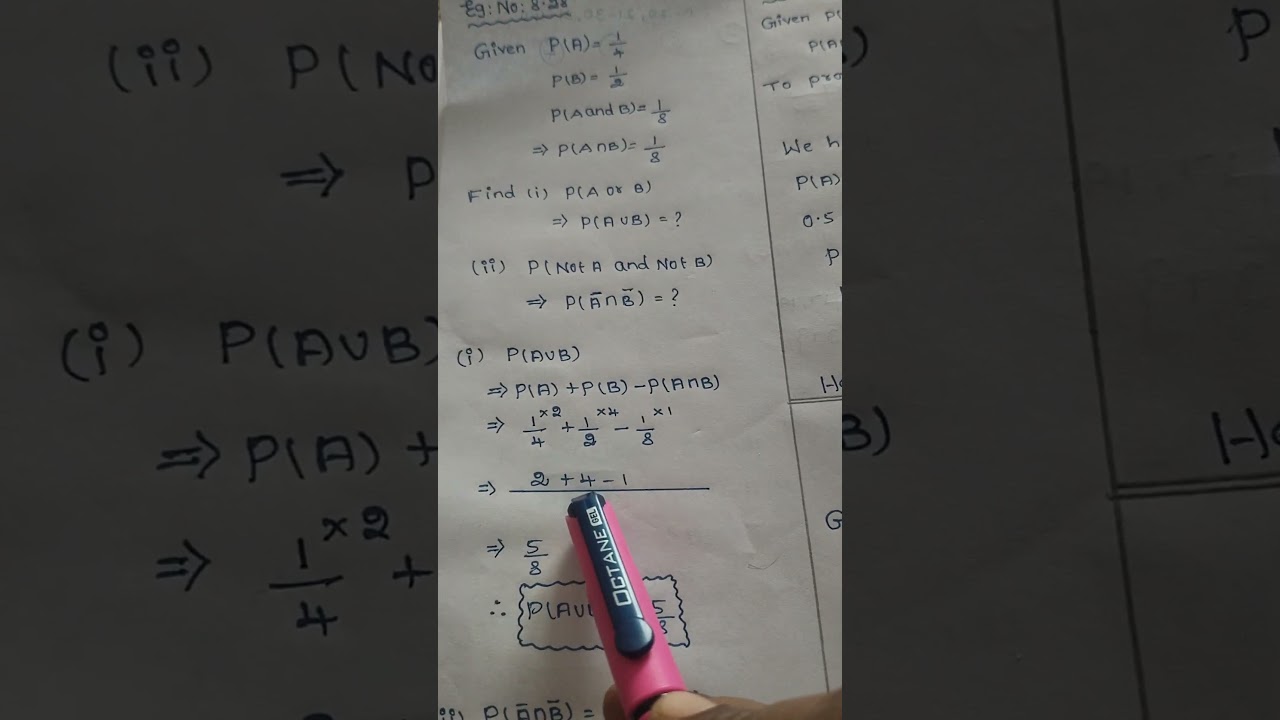 Eg: No: 8.28
Given P(A) = 1/4
P(B) = 1/2
P(A and B) = 1/8
⇒ P(A∩B) = 1/8
Find (i) P(A or B)
⇒ P(A∪B) = ?
(ii) P(Not A and Not B)
⇒ P(A̅∩B̅) = ?
(i) P(A∪B)
⇒ P(A) + P(B) – P(A∩B)
⇒ 1/4 ×2 + 1/2 ×4 – 1/8 ×1
⇒ 2 + 4 – 1
⇒ 5/8
∴ P(A∪
5
ii) P(A̅∩B̅) =
OCTANE
GEL
Given P(
P(A
To pro
We h
P(A)
0.5
P
(ii) P(No
⇒ P
(i) P(A∪B)
⇒ P(A) +
⇒ 1/4 ×2 +
P
B)